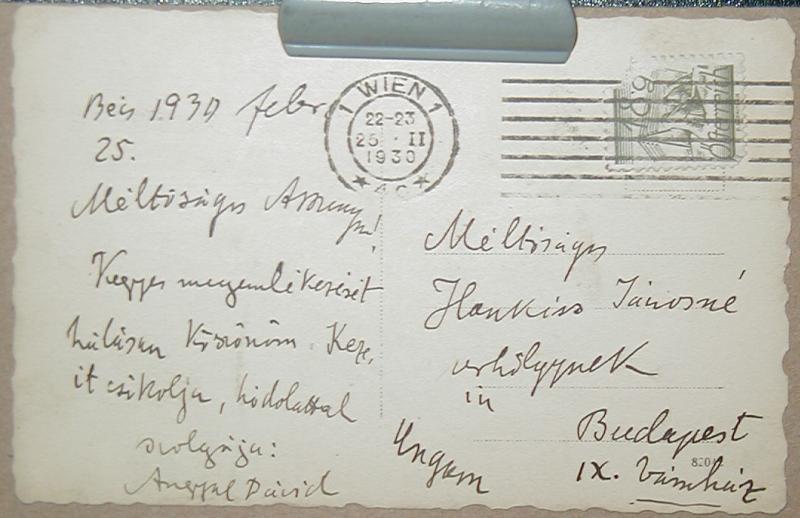 Bécs 1930 febr
25.
Méltóságos Asszonyom!
Kegyes megemlékezését
hálásan köszönöm. Keze,
it csókolja, hódolattal
szolgája:
Angyal Dávid
1 WIEN 1
22-23
25 · II
1930
★ 4c ★
Österreich
Méltóságos
Hankiss Jánosné
urhölgynek
in
Budapest
Ungarn
IX. Vámház